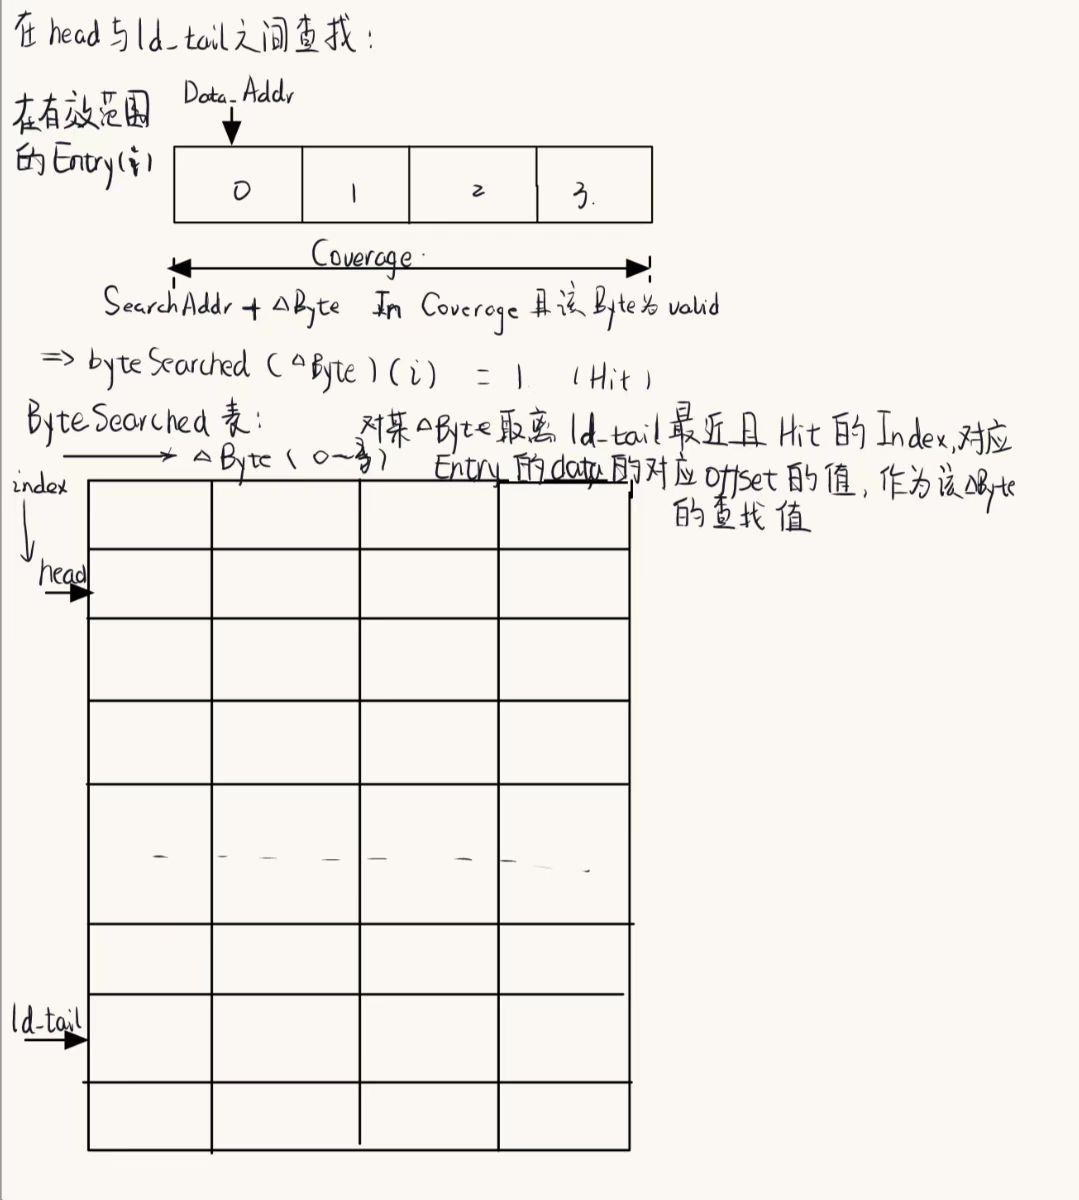 在head与ld_tail之间查找：
在有效范围 Data_Addr
的Entry(i)
0 1 2 3.
Coverage.
SearchAddr + △Byte In Coverage 且该Byte为valid
=> byteSearched (△Byte)(i) = 1 (Hit)
ByteSearched 表： 对某△Byte取离ld_tail最近且Hit的Index,对应
△Byte (0~3) Entry的data的对应offset的值，作为该△Byte
index 的查找值
head
ld-tail